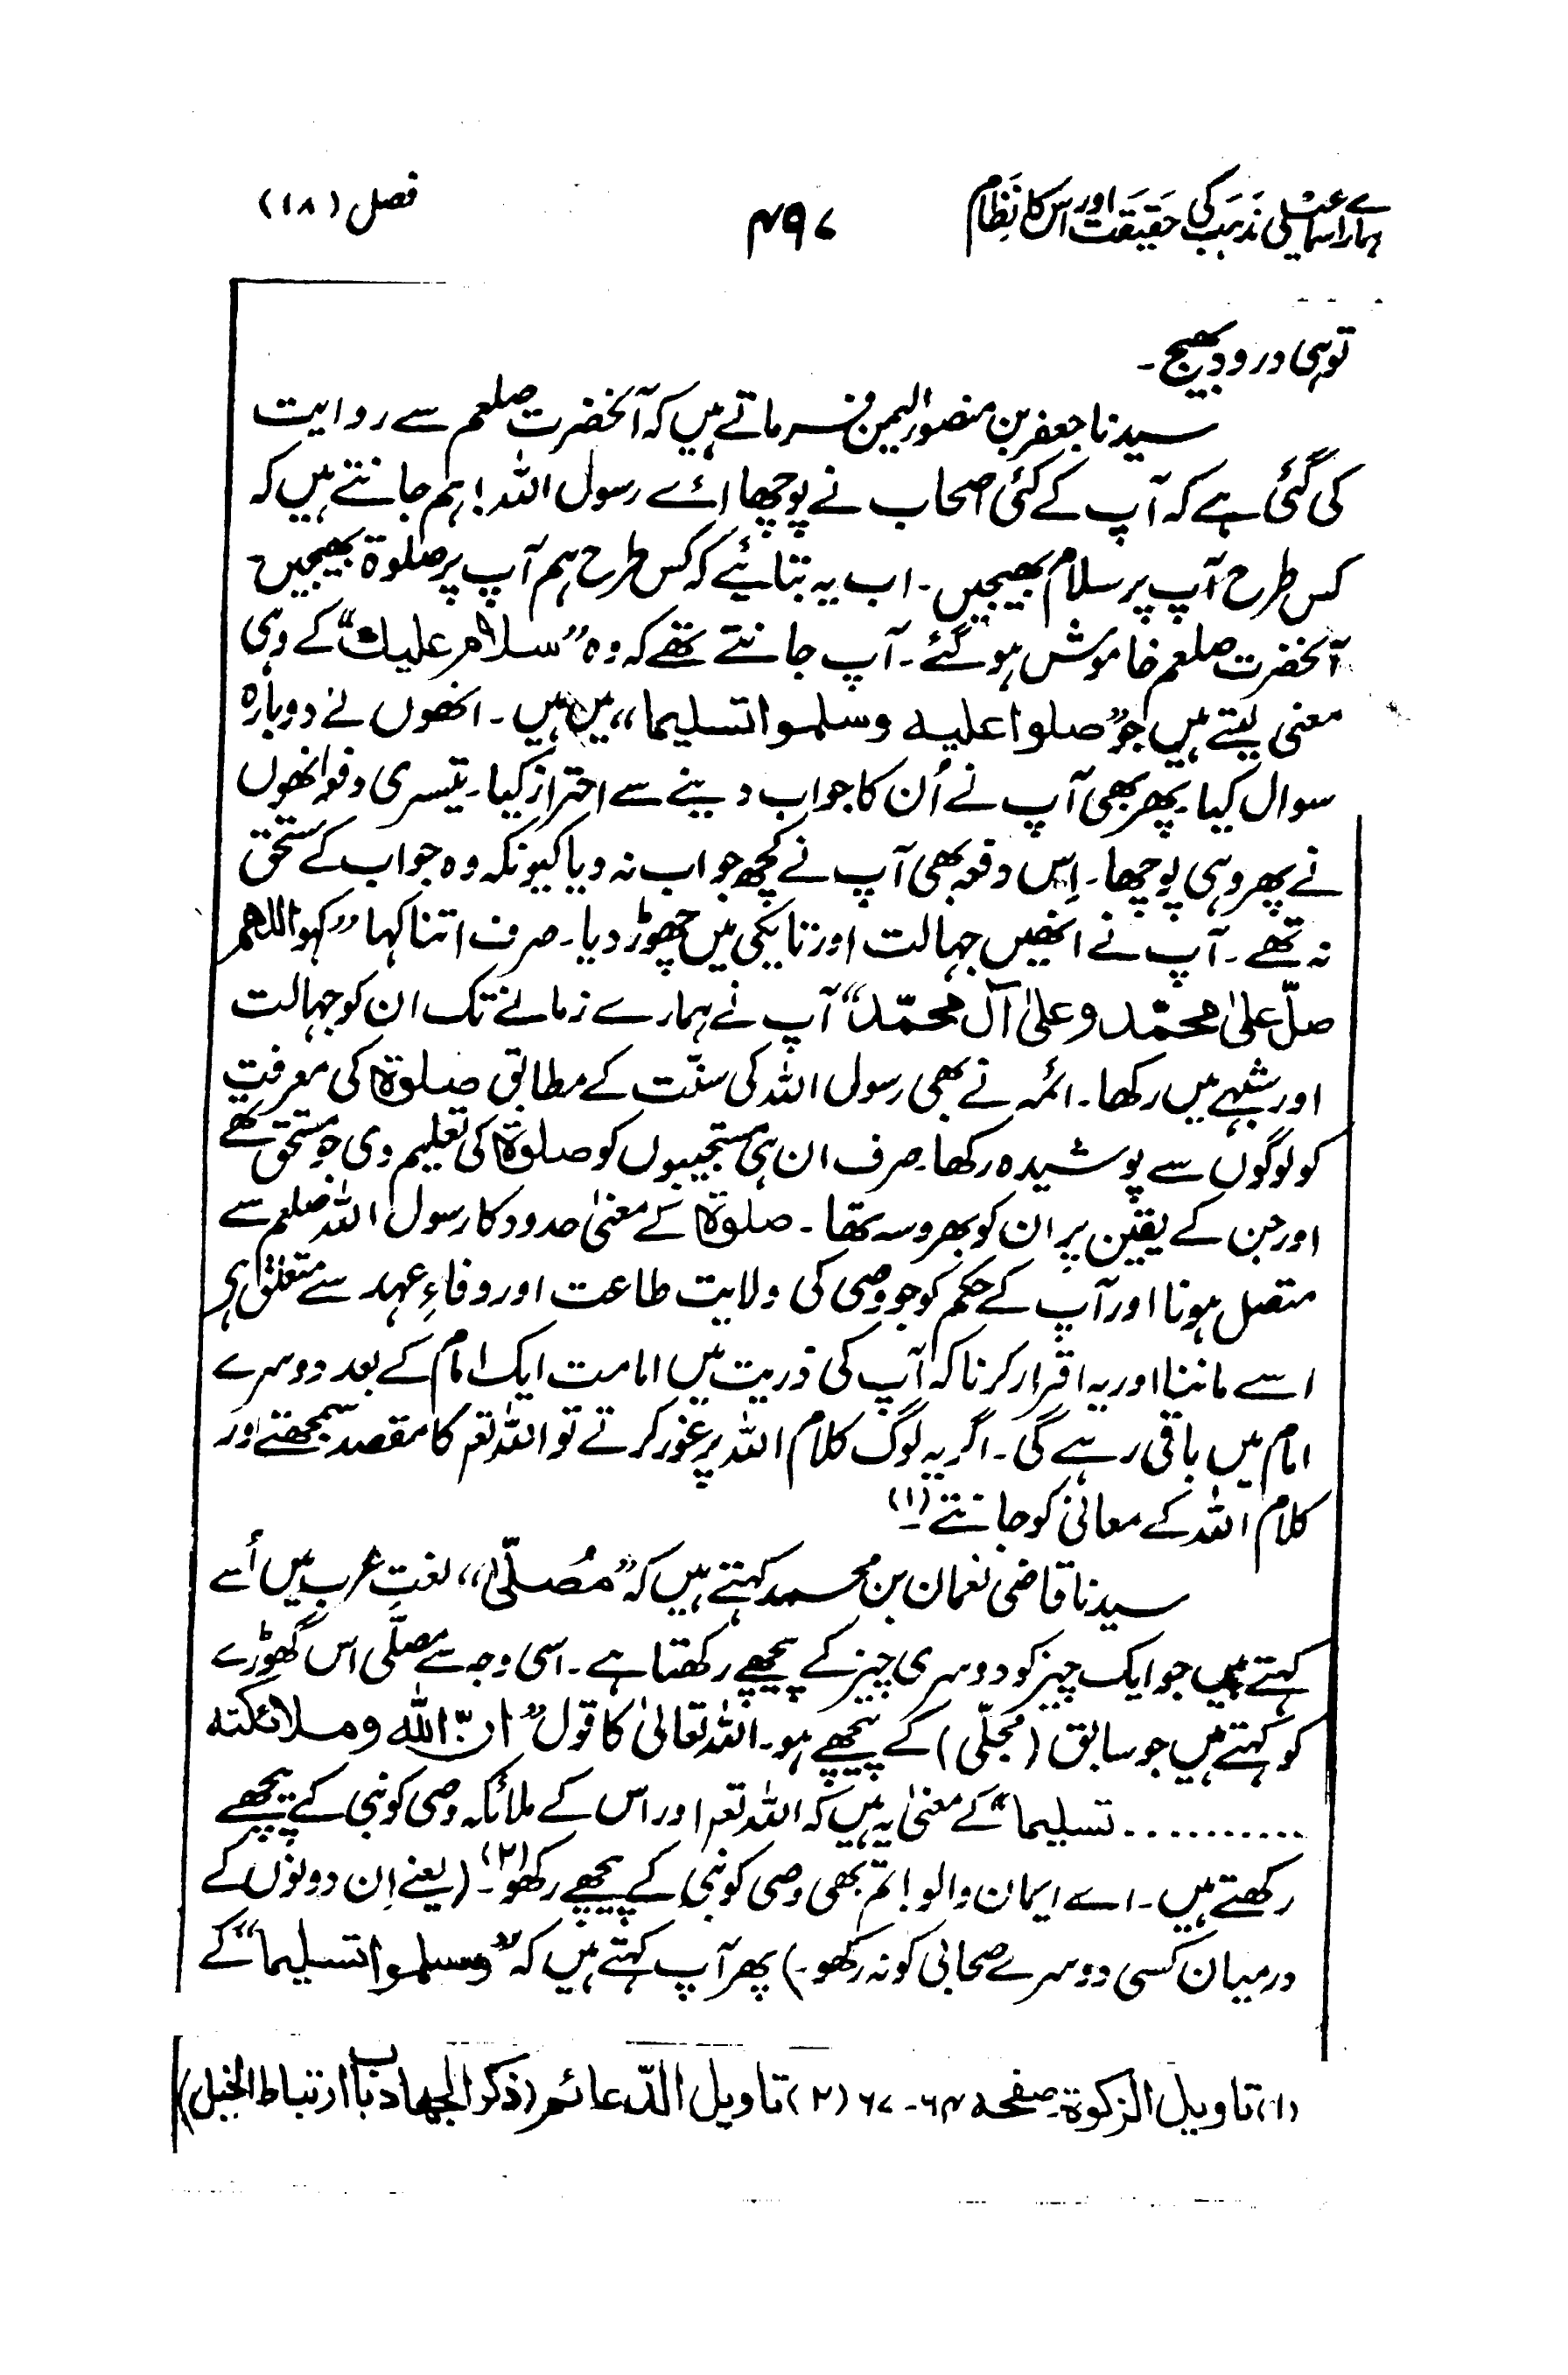 ہمارے اسماعیلی مذہب کی حقیقت اور اس کا نظام
۴۹۷
فصل (۱۸)
تو ہی درود بھیج۔
سیدنا جعفر بن منصور الیمن فرماتے ہیں کہ آنحضرت صلعم سے روایت
کی گئی ہے کہ آپ کے کئی اصحاب نے پوچھا اے رسول اللہ! ہم جانتے ہیں کہ
کس طرح آپ پر سلام بھیجیں۔ اب یہ بتائیے کہ کس طرح ہم آپ پر صلوۃ بھیجیں۔
آنحضرت صلعم خاموش ہو گئے۔ آپ جانتے تھے کہ وہ ”سلام علیك“ کے وہی
معنی لیتے ہیں جو ”صلوا علیہ وسلموا تسلیما“ میں ہیں۔ انھوں نے دوبارہ
سوال کیا۔ پھر بھی آپ نے اُن کا جواب دینے سے احتراز کیا۔ تیسری دفعہ انھوں
نے پھر وہی پوچھا۔ اِس دفعہ بھی آپ نے کچھ جواب نہ دیا کیونکہ وہ جواب کے مستحق
نہ تھے۔ آپ نے انھیں جہالت اور تاریکی میں چھوڑ دیا۔ صرف اتنا کہا ”کہو اللھم
صلّ علیٰ محمّد وعلیٰ آل محمّد“ آپ نے ہمارے زمانے تک ان کو جہالت
اور شبہے میں رکھا۔ ائمہ نے بھی رسول اللہ کی سنّت کے مطابق صلوۃ کی معرفت
کو لوگوں سے پوشیدہ رکھا۔ صرف ان ہی مستجیبوں کو صلوۃ کی تعلیم دی جو مستحق تھے
اور جن کے یقین پر ان کو بھروسہ تھا۔ صلوۃ کے معنیٰ حدود کا رسول اللہ صلعم سے
متصل ہونا اور آپ کے حکم کو جو وصی کی ولایت طاعت اور وفاءِ عہد سے متعلق ہی
اسے ماننا اور یہ اقرار کرنا کہ آپ کی ذریت میں امامت ایک امام کے بعد دوسرے
امام میں باقی رہے گی۔ اگر یہ لوگ کلام اللہ پر غور کرتے تو اللہ تعہ کا مقصد سمجھتے اور
کلام اللہ کے معانی کو جانتے۔(۱)
سیدنا قاضی نعمان بن محمد کہتے ہیں کہ ”مُصلّی“ لغتِ عرب میں اُسے
کہتے ہیں جو ایک چیز کو دوسری چیز کے پیچھے رکھتا ہے۔ اسی وجہ سے مصلّی اس گھوڑے
کو کہتے ہیں جو سابق (مجلّی) کے پیچھے ہو۔ اللہ تعالیٰ کا قول ”انّ اللہ وملائکتہ
........... تسلیما“ کے معنیٰ یہ ہیں کہ اللہ تعہ اور اس کے ملائکہ وصی کو نبی کے پیچھے
رکھتے ہیں۔ اے ایمان والو! تم بھی وصی کو نبی کے پیچھے رکھو۔(۲) (یعنے اِن دونوں کے
درمیان کسی دوسرے صحابی کو نہ رکھو۔) پھر آپ کہتے ہیں کہ ”وسلموا تسلیما“ کے
(۱) تاویل الزکوۃ۔ صفحہ ۶۴۔۶۷ (۲) تاویل الدّعائم (ذکر الجھاد باب ارتباط الخیل)